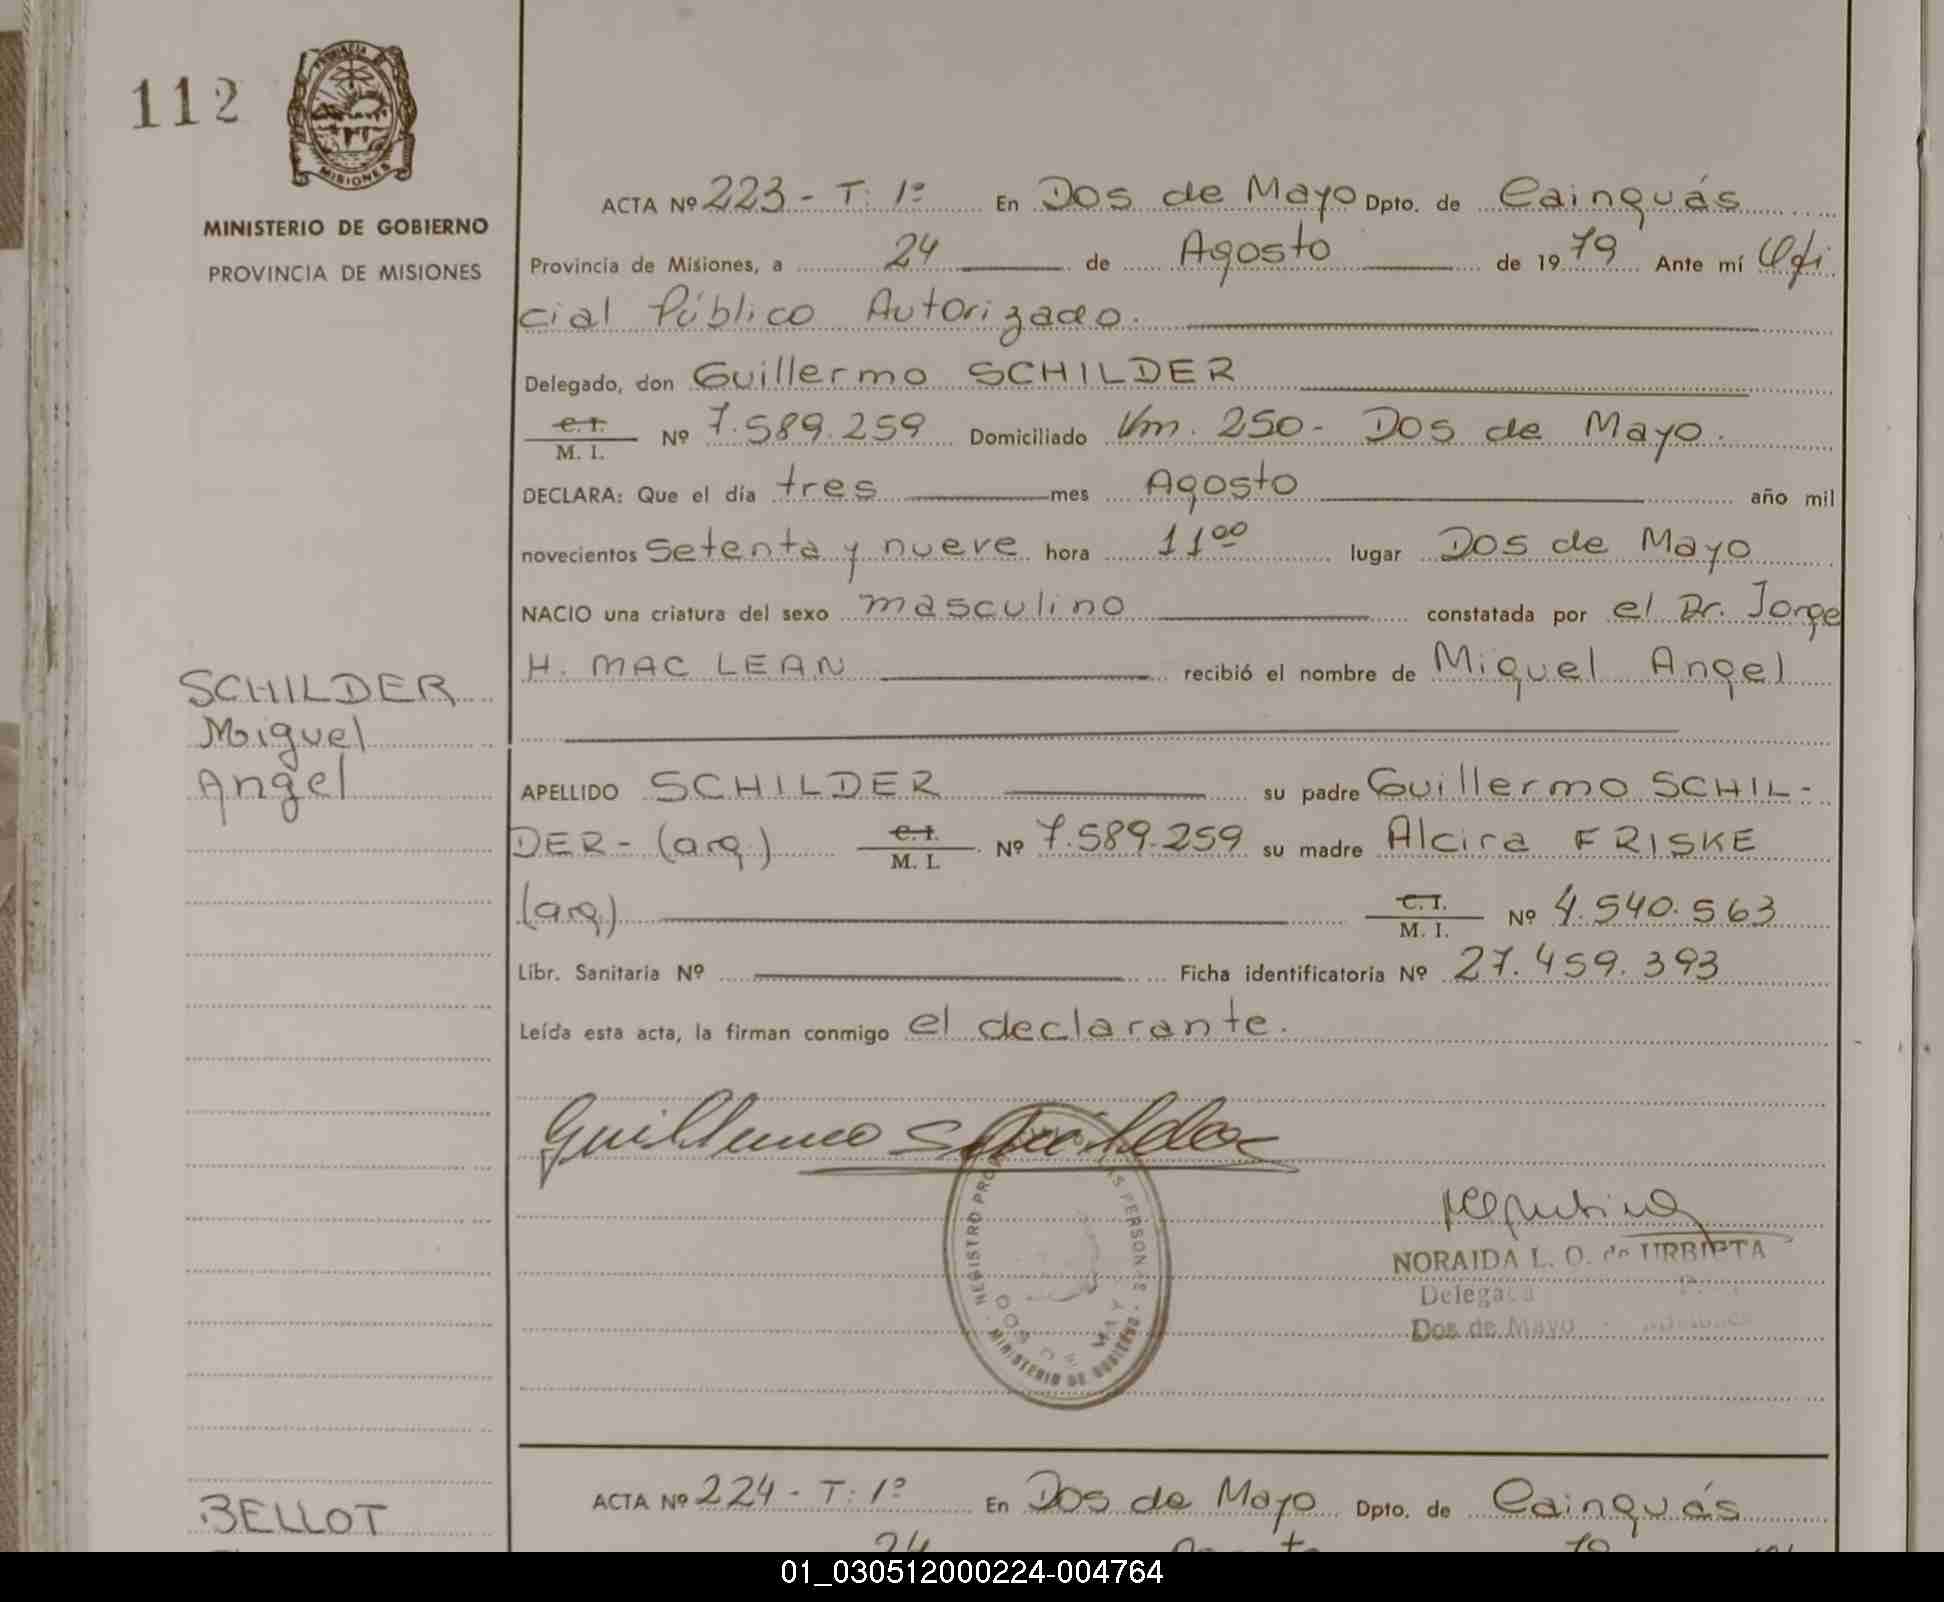 112
PROVINCIA DE
MISIONES
MINISTERIO DE GOBIERNO
PROVINCIA DE MISIONES
ACTA Nº 223 - T: 1º En Dos de Mayo Dpto. de Cainguás
Provincia de Misiones, a 24 de Agosto de 1979 Ante mí Ofi
cial Público Autorizado.
Delegado, don Guillermo SCHILDER
C.I. M. I. Nº 7.589.259 Domiciliado Km. 250 - Dos de Mayo.
DECLARA: Que el día tres mes Agosto año mil
novecientos setenta y nueve hora 11⁰⁰ lugar Dos de Mayo
NACIO una criatura del sexo masculino constatada por el Dr. Jorge
H. MAC LEAN recibió el nombre de Miguel Angel
SCHILDER
Miguel
Angel
APELLIDO SCHILDER su padre Guillermo SCHIL-
DER - (arg.) C.I. M. I. Nº 7.589.259 su madre Alcira FRISKE
(arg.) C.I. M. I. Nº 4.540.563
Libr. Sanitaria Nº Ficha identificatoria Nº 27.459.393
Leída esta acta, la firman conmigo el declarante.
Guillermo Schilder
REGISTRO PERSONAS
DOS DE MAYO
MINISTERIO DE GOBIERNO
NORAIDA L. O. de URBIETA
Delegada
Dos de Mayo
BELLOT
ACTA Nº 224 - T: 1º En Dos de Mayo Dpto. de Cainguás
24 Agosto 79
01_030512000224-004764